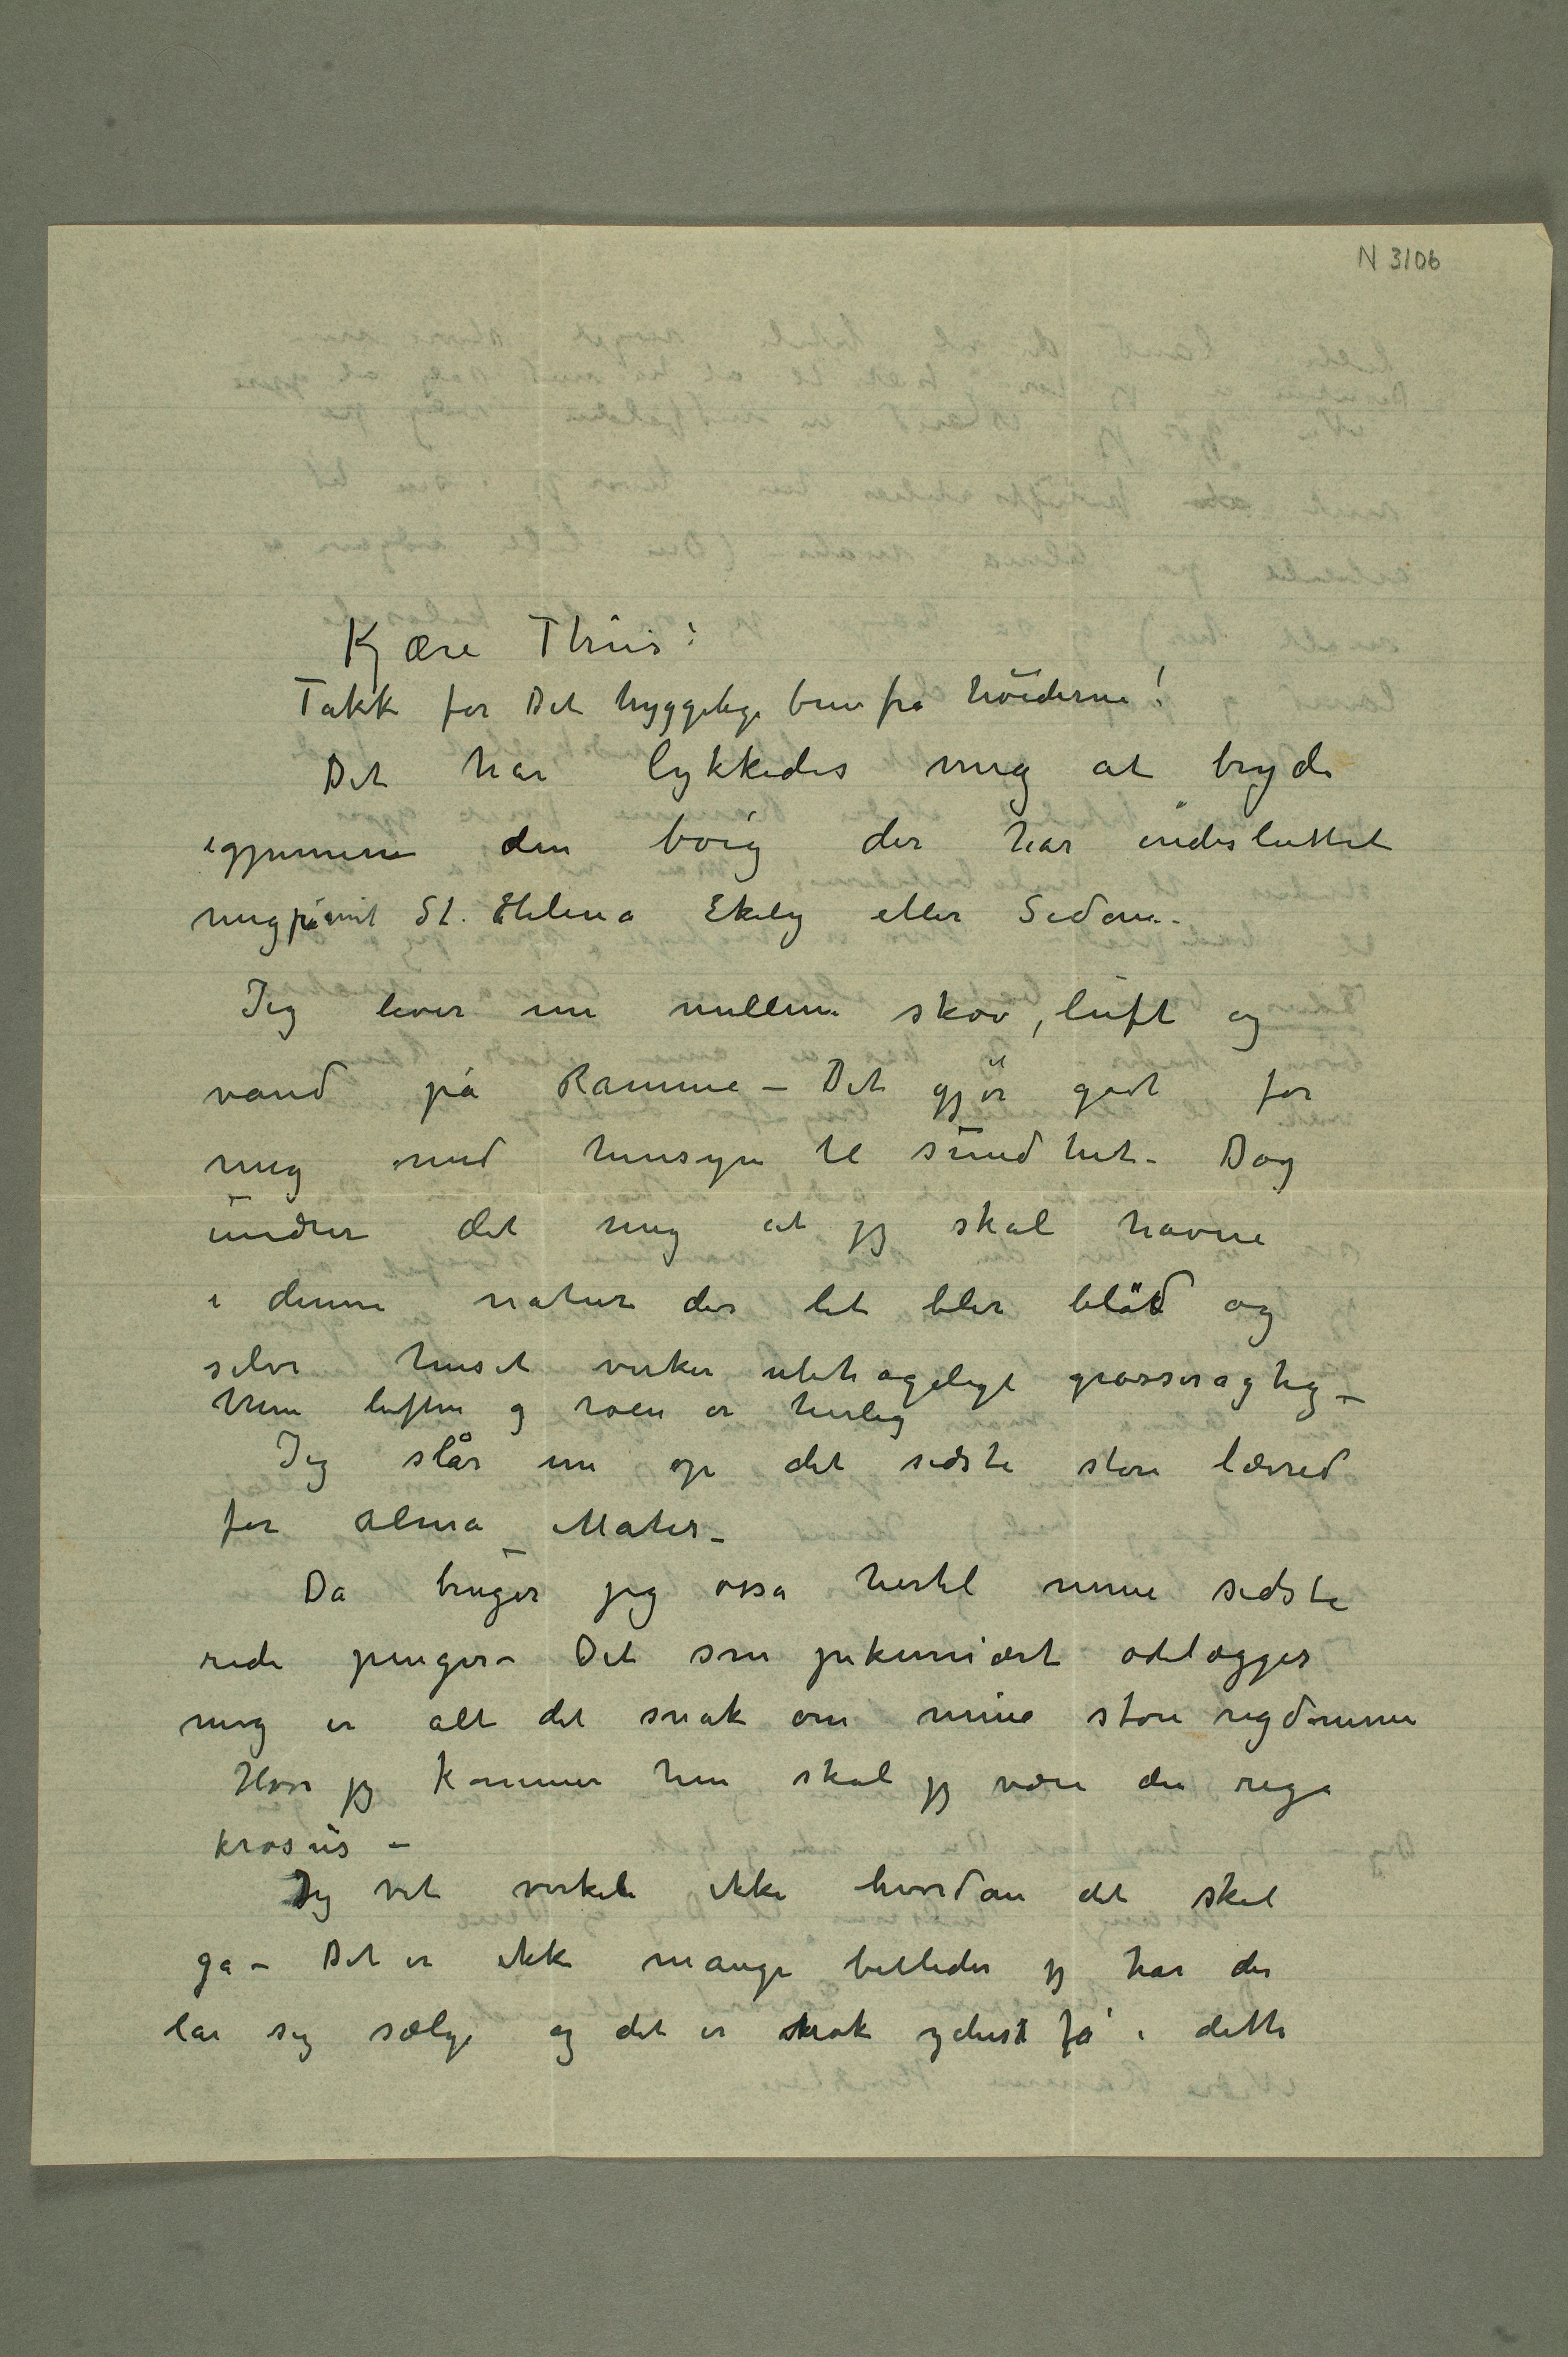 N 3106
Kjære Thiis!
Takk for Det hyggelige brev fra höiderne!
Det har lykkedes mig at bryde
igjennem den böig der har indesluttet
mig på mit St. Helena Ekely eller Sedan.
Jeg lever nu mellem skov, luft og
vand på Ramme – Det gjör godt for
mig med hensyn til sundhet. Dog
undrer det mig at jeg skal havne
i denne natur der let blir blöd og
selve huset virker ubehageligt grosseragtig –
Men luften og roen er herlig
Jeg slår nu op det sidste store lærred
for alma Mater –
Da bruger jeg osså hertil mine sidste
rede penger – Det som pekuniært ödelægger
mig er alt det snak om mine store rigdomme
Hvor jeg kommer hen skal jeg være den rige
krøsus –
Jeg vet virkeli ikke hvordan det skal
gå – Det er ikke mange billeder jeg har der
lar sig sælge og det er nok yderst få i dette